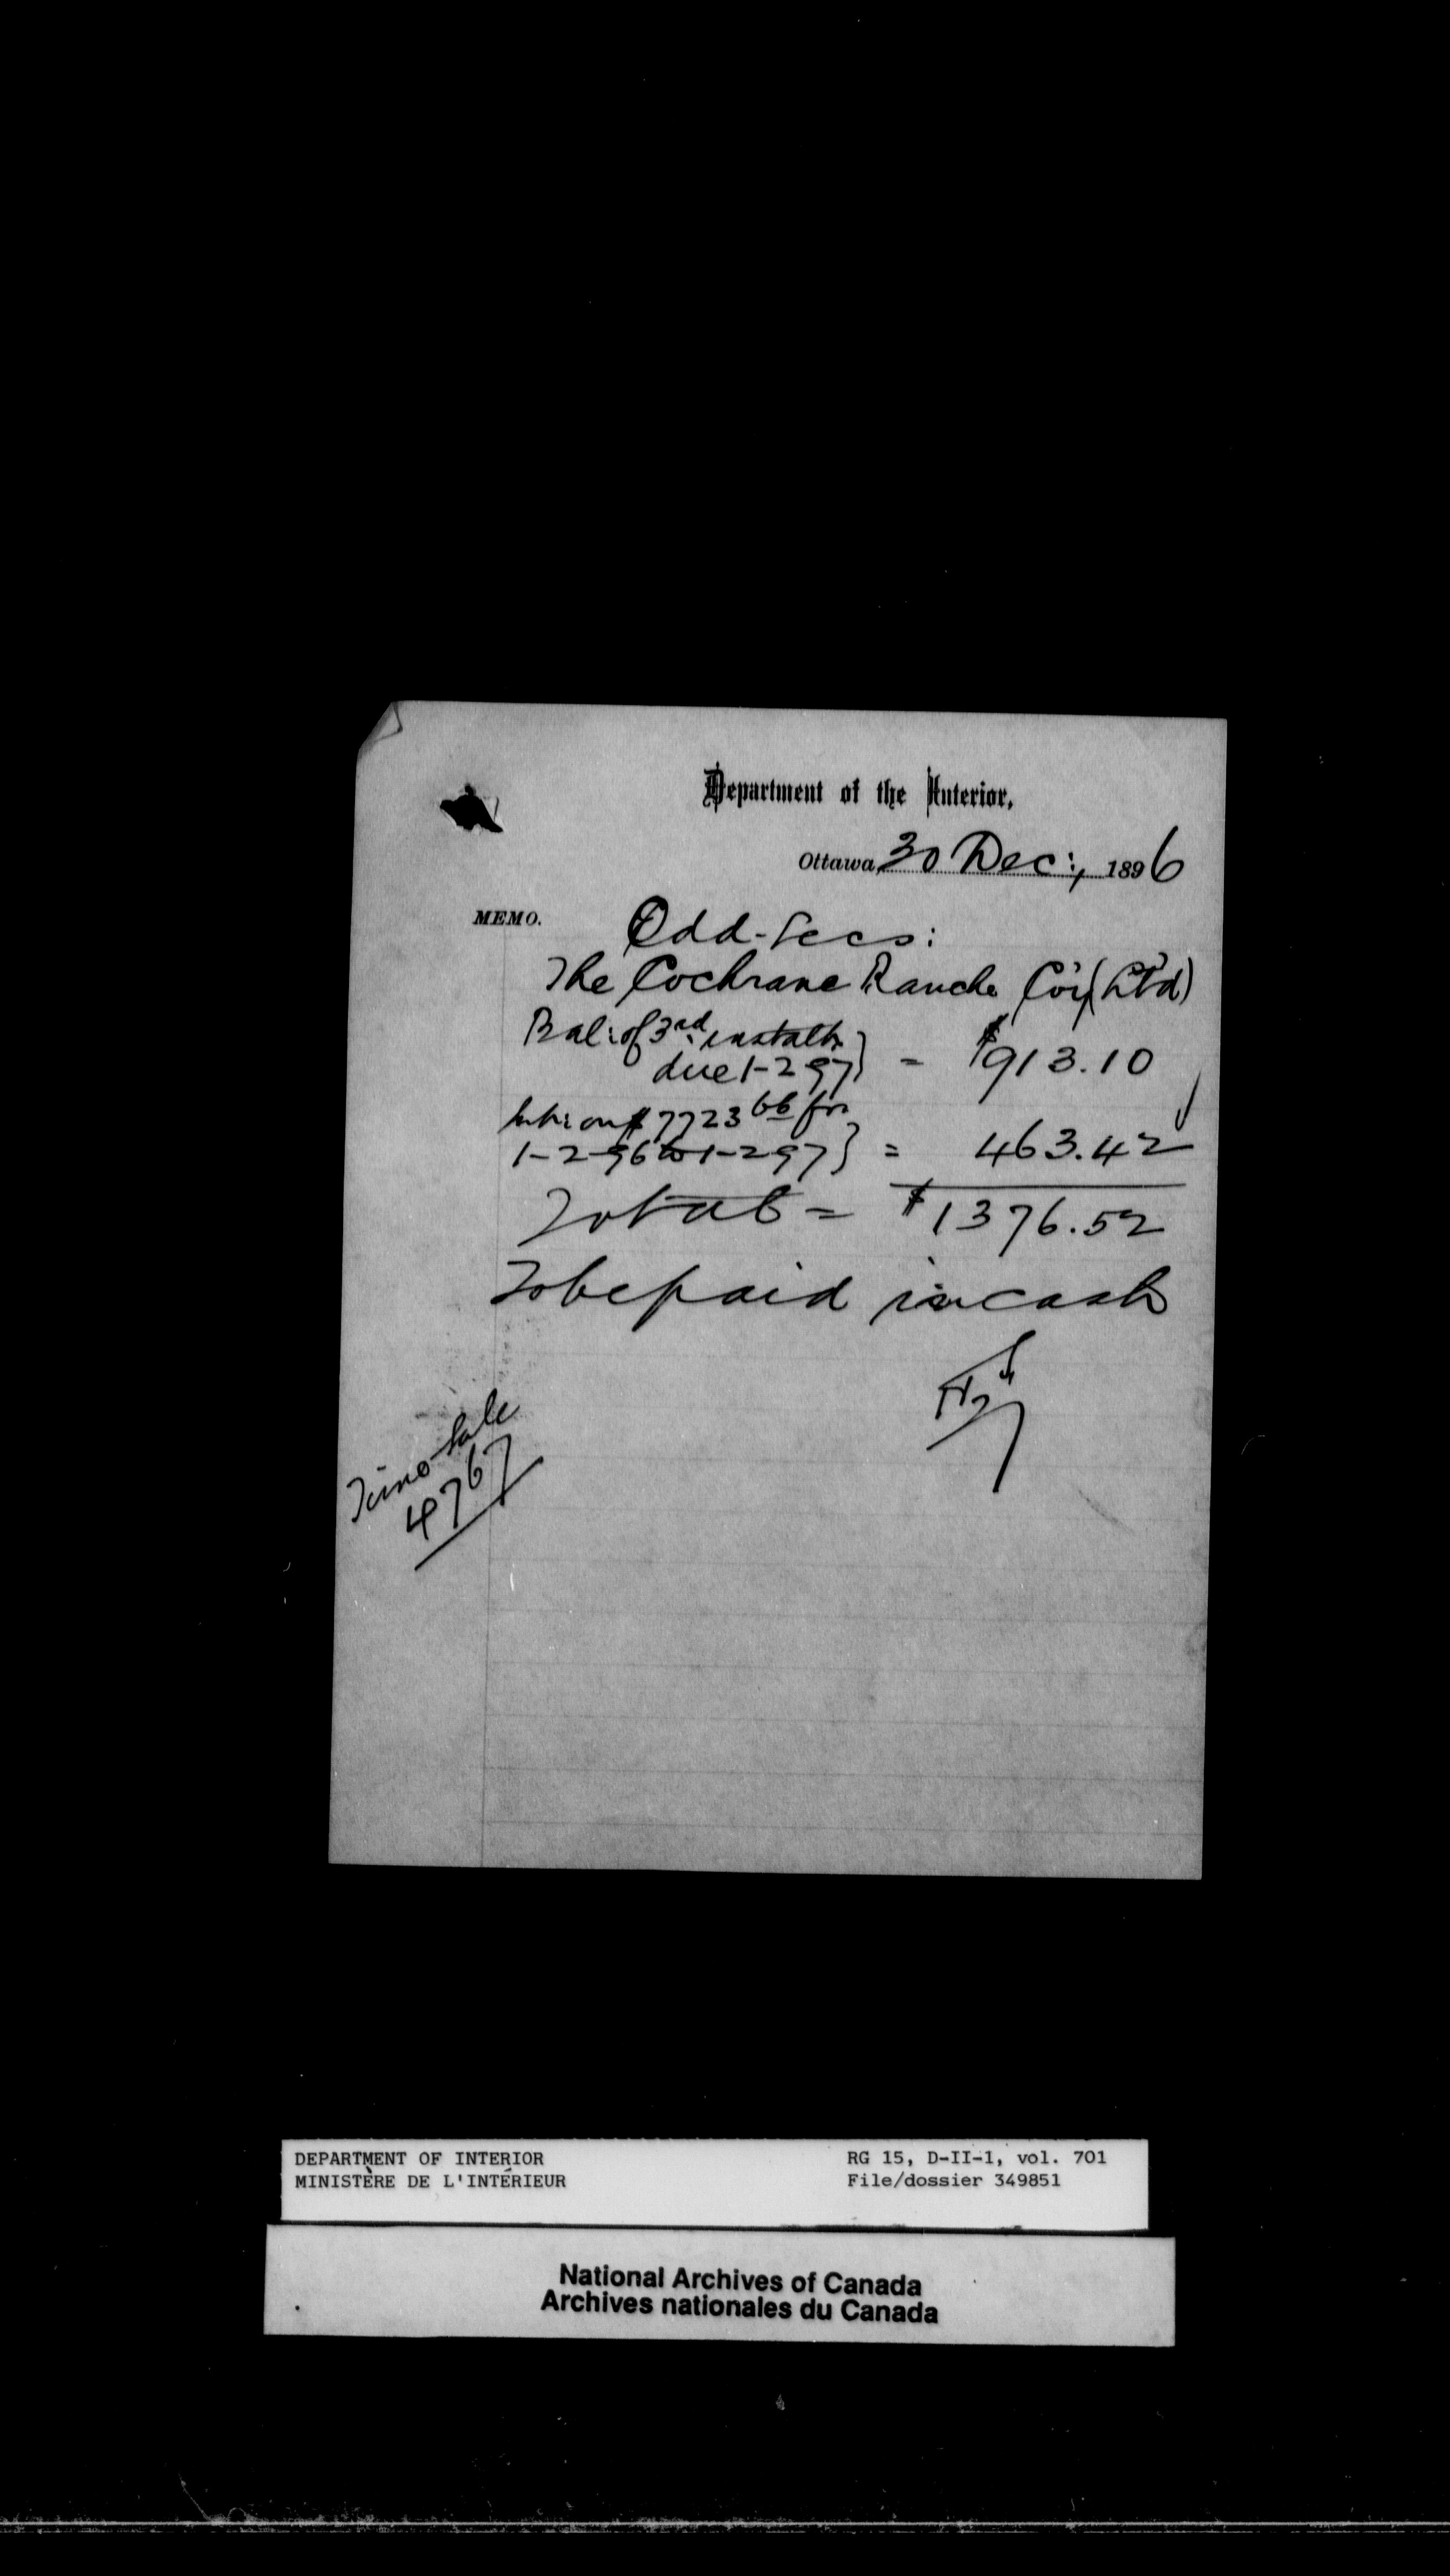 Department of the Interior,
Ottawa, 30 Dec:, 1896
MEMO.
Odd-Secs:
The Cochrane Ranche Co'y (Lt'd)
Bal: of 3rd instalt.
due 1-2-97} = $913.10
Int: on $7723 66 fr.
1-2-96 to 1-2-97} = 463.42
Total = $1376.52
To be paid in cash
Time Sale
4767
DEPARTMENT OF INTERIOR
MINISTÈRE DE L'INTÉRIEUR
RG 15, D-II-1, vol. 701
File/dossier 349851
National Archives of Canada
Archives nationales du Canada